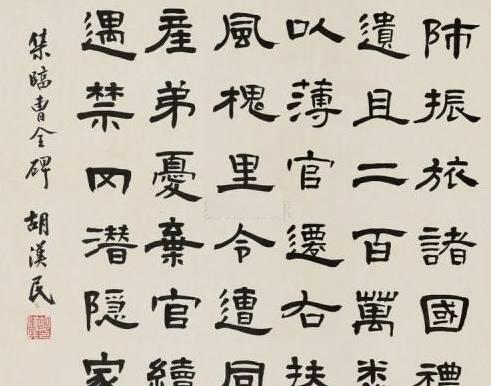 師振旅諸國禮
遺且二百萬悉
以薄官遷右扶
風槐里令遭同
產弟憂棄官續
遇禁网潛隱家
集臨曹全碑 胡漢民